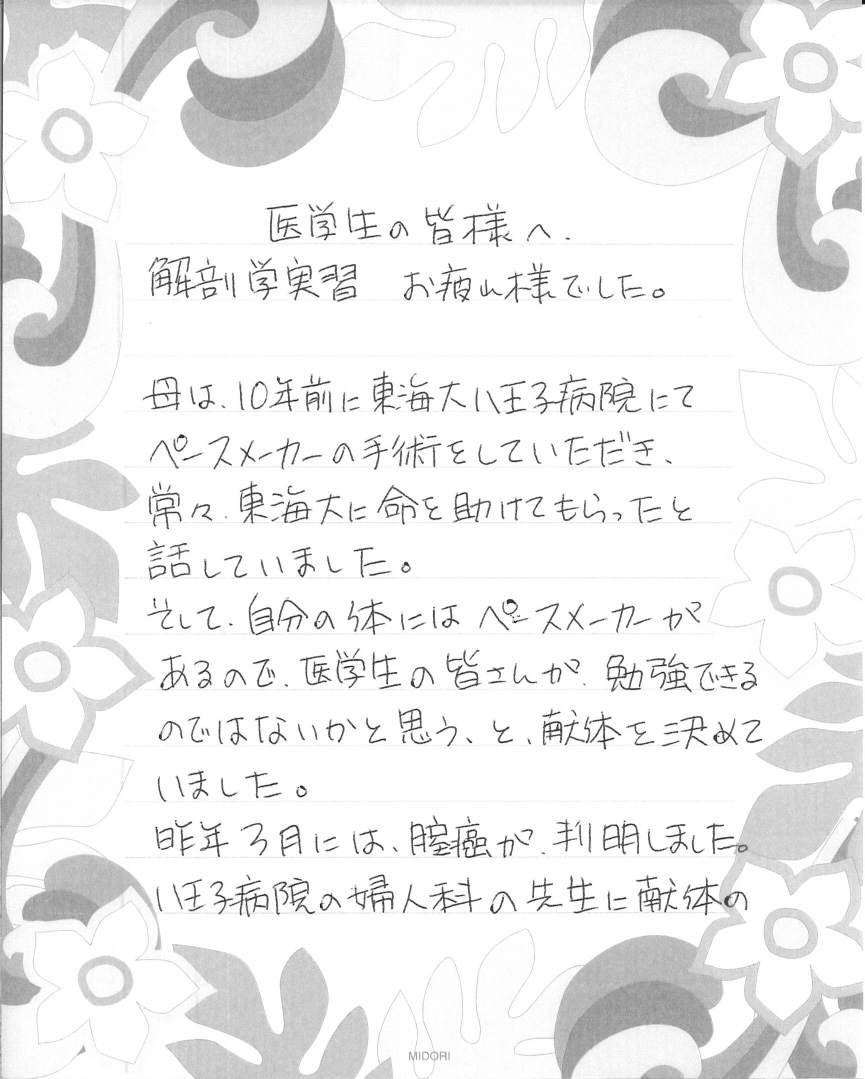 医学生の皆様へ.
解剖学実習　お疲れ様でした。
母は、10年前に東海大八王子病院にて
ペースメーカーの手術をしていただき、
常々、東海大に命を助けてもらったと
話していました。
そして、自分の体にはペースメーカーが
あるので、医学生の皆さんが、勉強できる
のではないかと思う、と、献体を決めて
いました。
昨年3月には、膣癌が、判明しました。
八王子病院の婦人科の先生に献体の
MIDORI